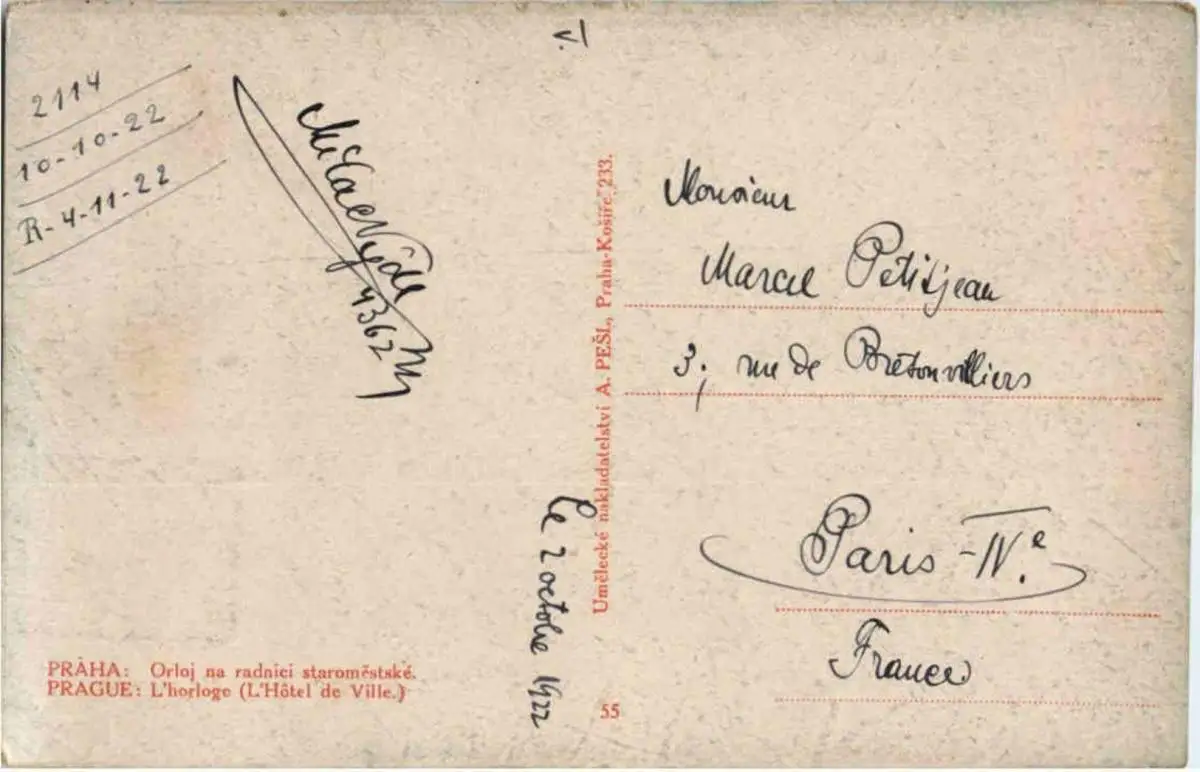 2114
10-10-22
R-4-11-22
4362
V.
Le 2 octobre 1922
Umělecké nakladatelství A. PEŠL, Praha-Košíře, 233.
55
Monsieur
Marcel Petitjean
3, rue de Bretonvilliers
Paris-IVe.
France
PRAHA: Orloj na radnici staroměstské.
PRAGUE: L'horloge (L'Hôtel de Ville.)